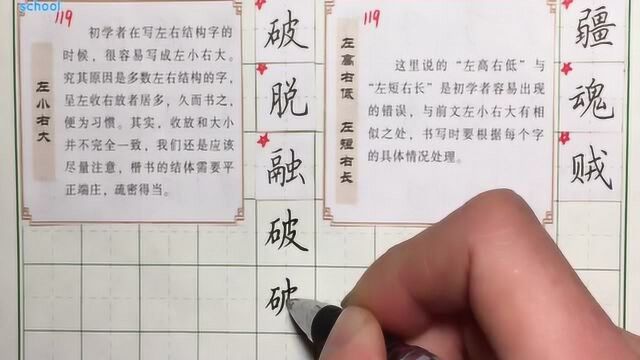 school
119
初学者在写左右结构字的
时候，很容易写成左小右大。
究其原因是多数左右结构的字，
呈左收右放者居多，久而书之，
便为习惯。其实，收放和大小
并不完全一致，我们还是应该
尽量注意，楷书的结体需要平
正端庄，疏密得当。
左小右大
破
脱
融
破
破
119
左高右低 左短右长
这里说的“左高右低”与
“左短右长”是初学者容易出现
的错误，与前文左小右大有相
似之处，书写时要根据每个字
的具体情况处理。
疆
魂
贼